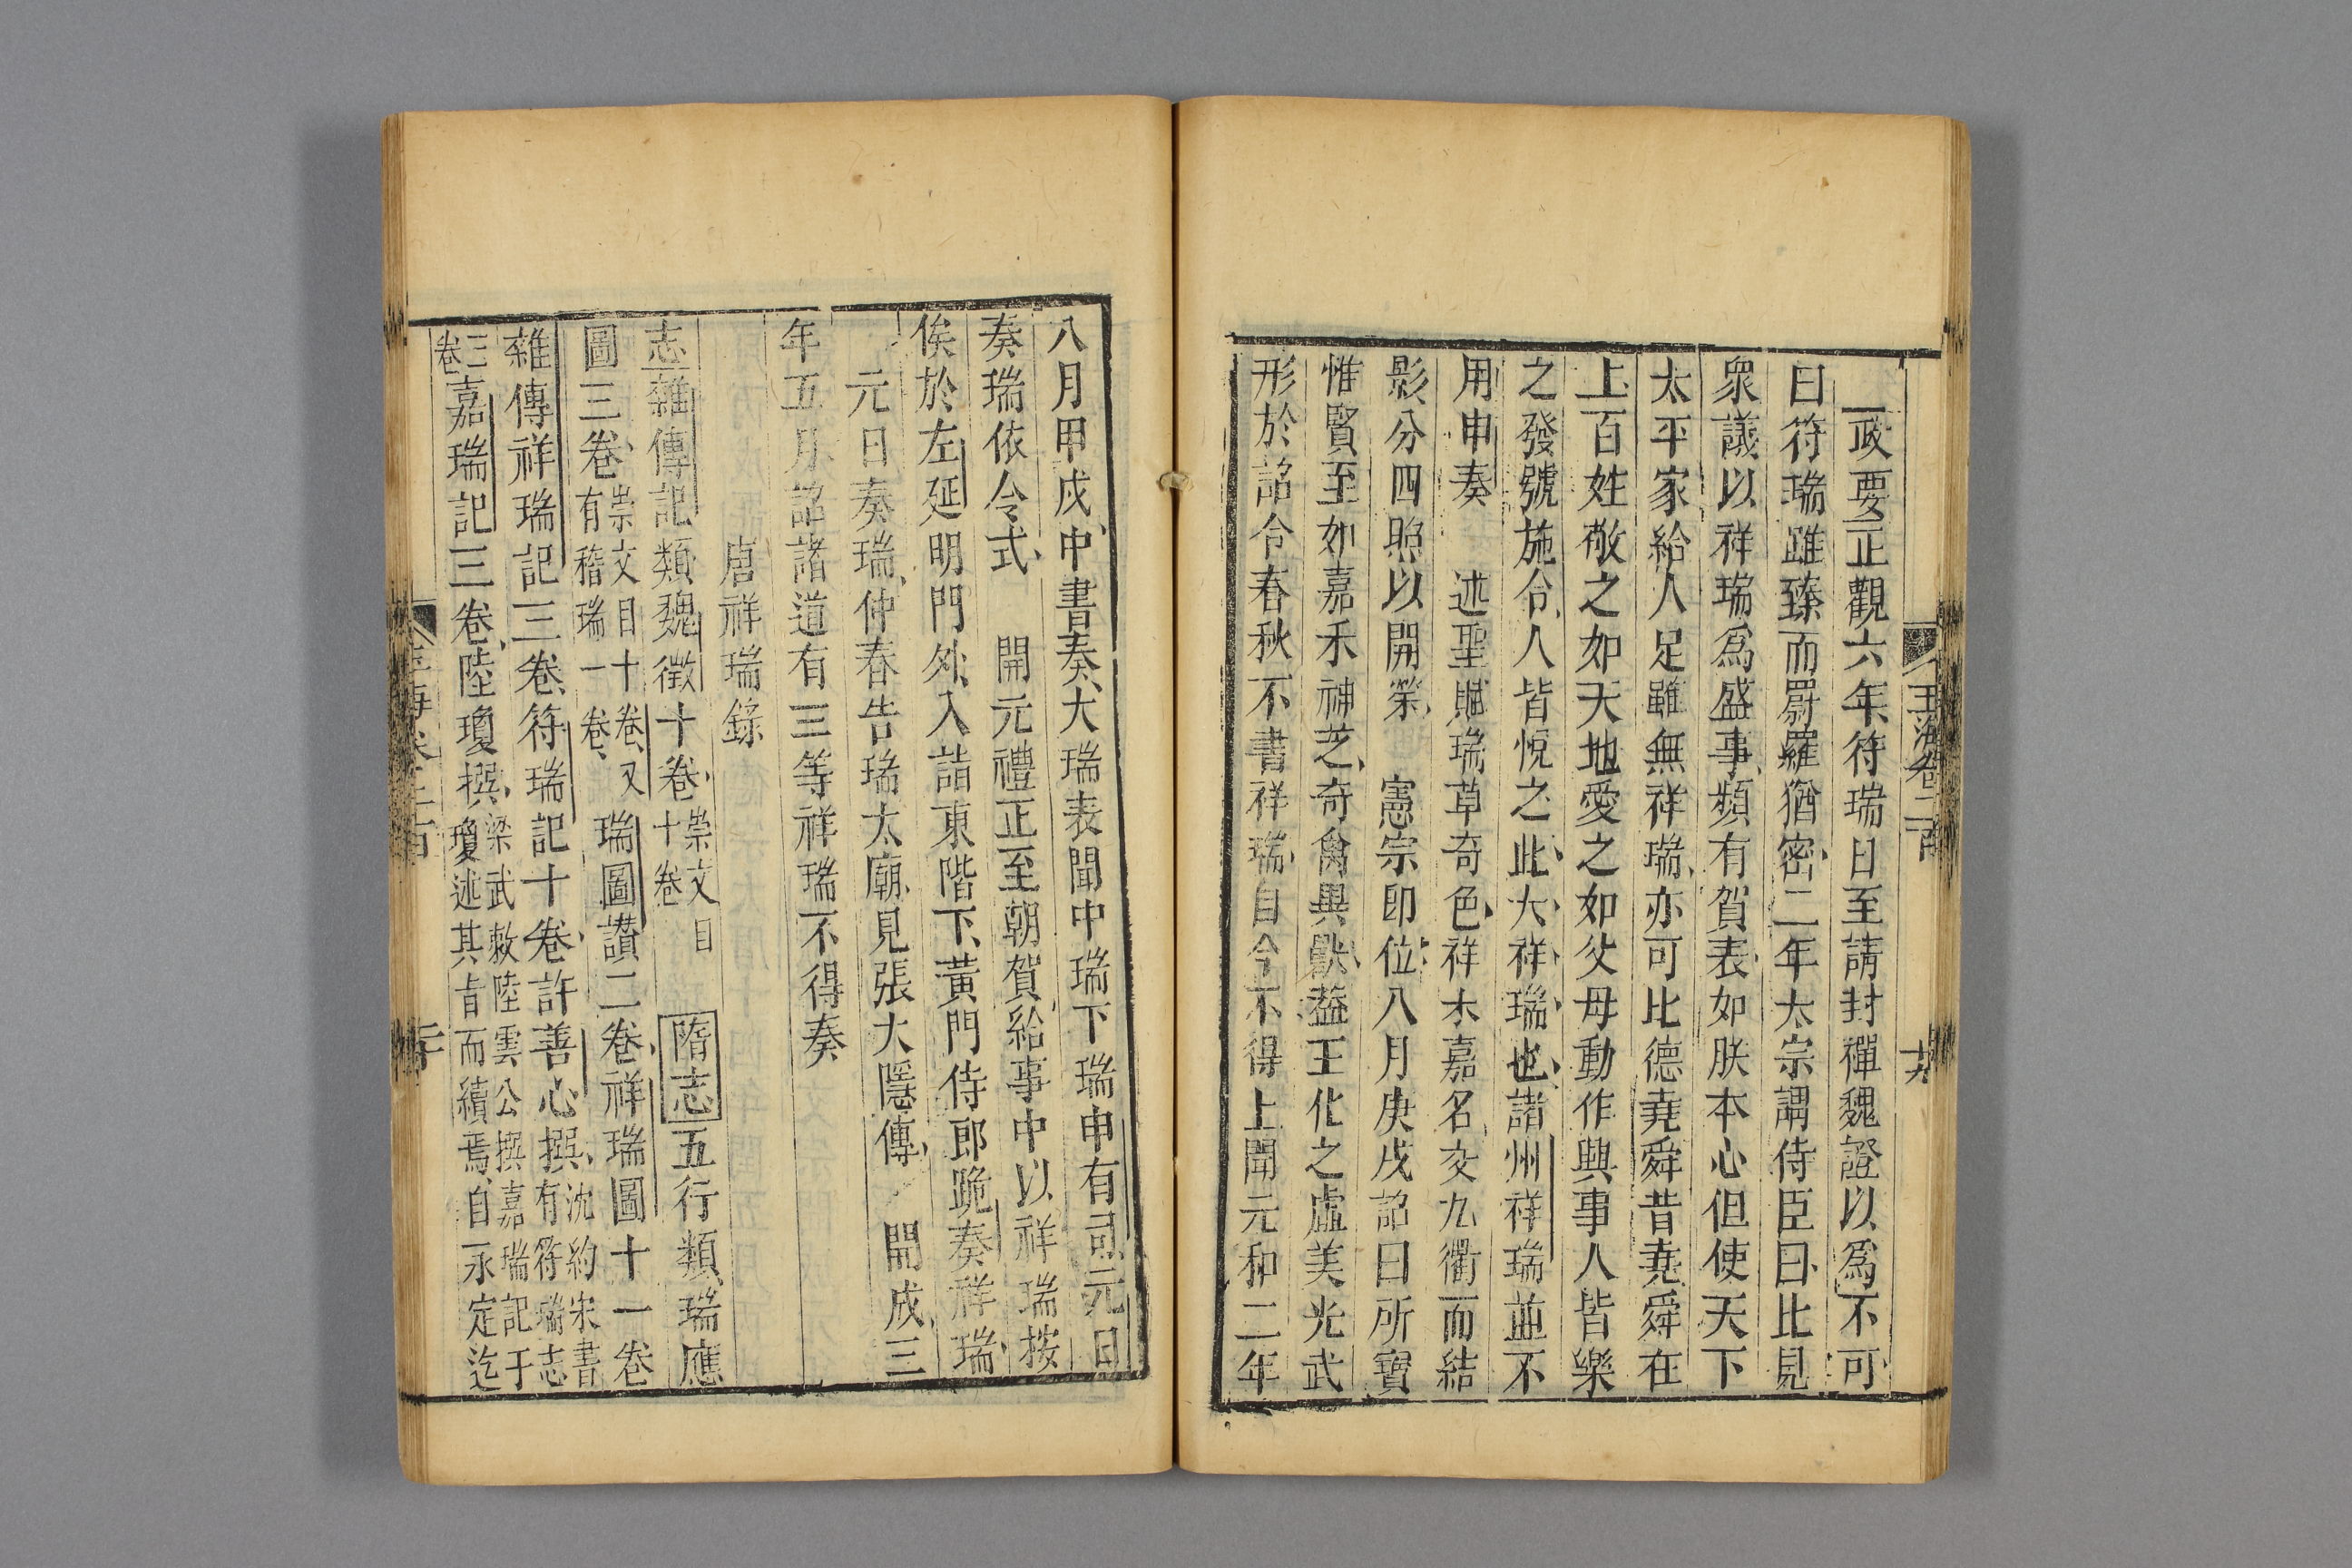 玉海卷二百
政要正觀六年符瑞日至請封禪魏證以爲不可
曰符瑞雖臻而罻羅猶密二年太宗謂侍臣曰比見
衆議以祥瑞爲盛事頻有賀表如朕本心但使天下
太平家給人足雖無祥瑞亦可比德堯舜昔堯舜在
上百姓敬之如天地愛之如父母動作興事人皆樂
之發號施令人皆悅之此大祥瑞也諸州祥瑞並不
用申奏 述聖賦瑞草奇色祥木嘉名交九衢而結
影分四照以開榮 憲宗卽位八月庚戌詔曰所寶
惟賢至如嘉禾神芝奇禽異獸蓋王化之虛美光武
形於詔令春秋不書祥瑞自今不得上聞元和二年
八月甲戌中書奏大瑞表聞中瑞下瑞申有司元日
奏瑞依令式 開元禮正至朝賀給事中以祥瑞按
俟於左延明門外入詣東階下黃門侍郎跪奏祥瑞
元日奏瑞仲春告瑞太廟見張大隱傳 開成三
年五月詔諸道有三等祥瑞不得奏
唐祥瑞錄
志雜傳記類魏徵十卷崇文目十卷 隋志五行類瑞應
圖三卷崇文目十卷又有稽瑞一卷瑞圖讚二卷祥瑞圖十一卷
雜傳祥瑞記三卷符瑞記十卷許善心撰沈約宋書有符瑞志
三卷嘉瑞記三卷陸瓊撰梁武敕陸雲公撰嘉瑞記于瓊述其旨而續焉自永定迄